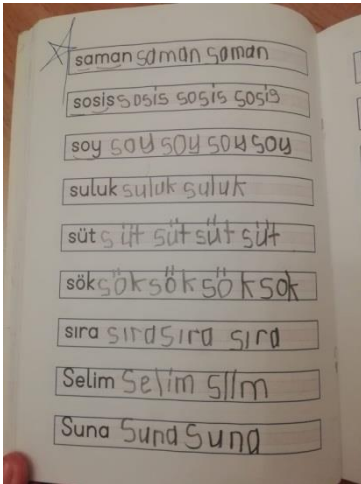 saman saman saman
sosis sosis sosis sosis
soy soy soy soy soy
suluk suluk suluk
süt süt süt süt süt
sök sök sök sök sok
sıra sıra sıra sıra
Selim Selim Slim
Suna Suna Suna